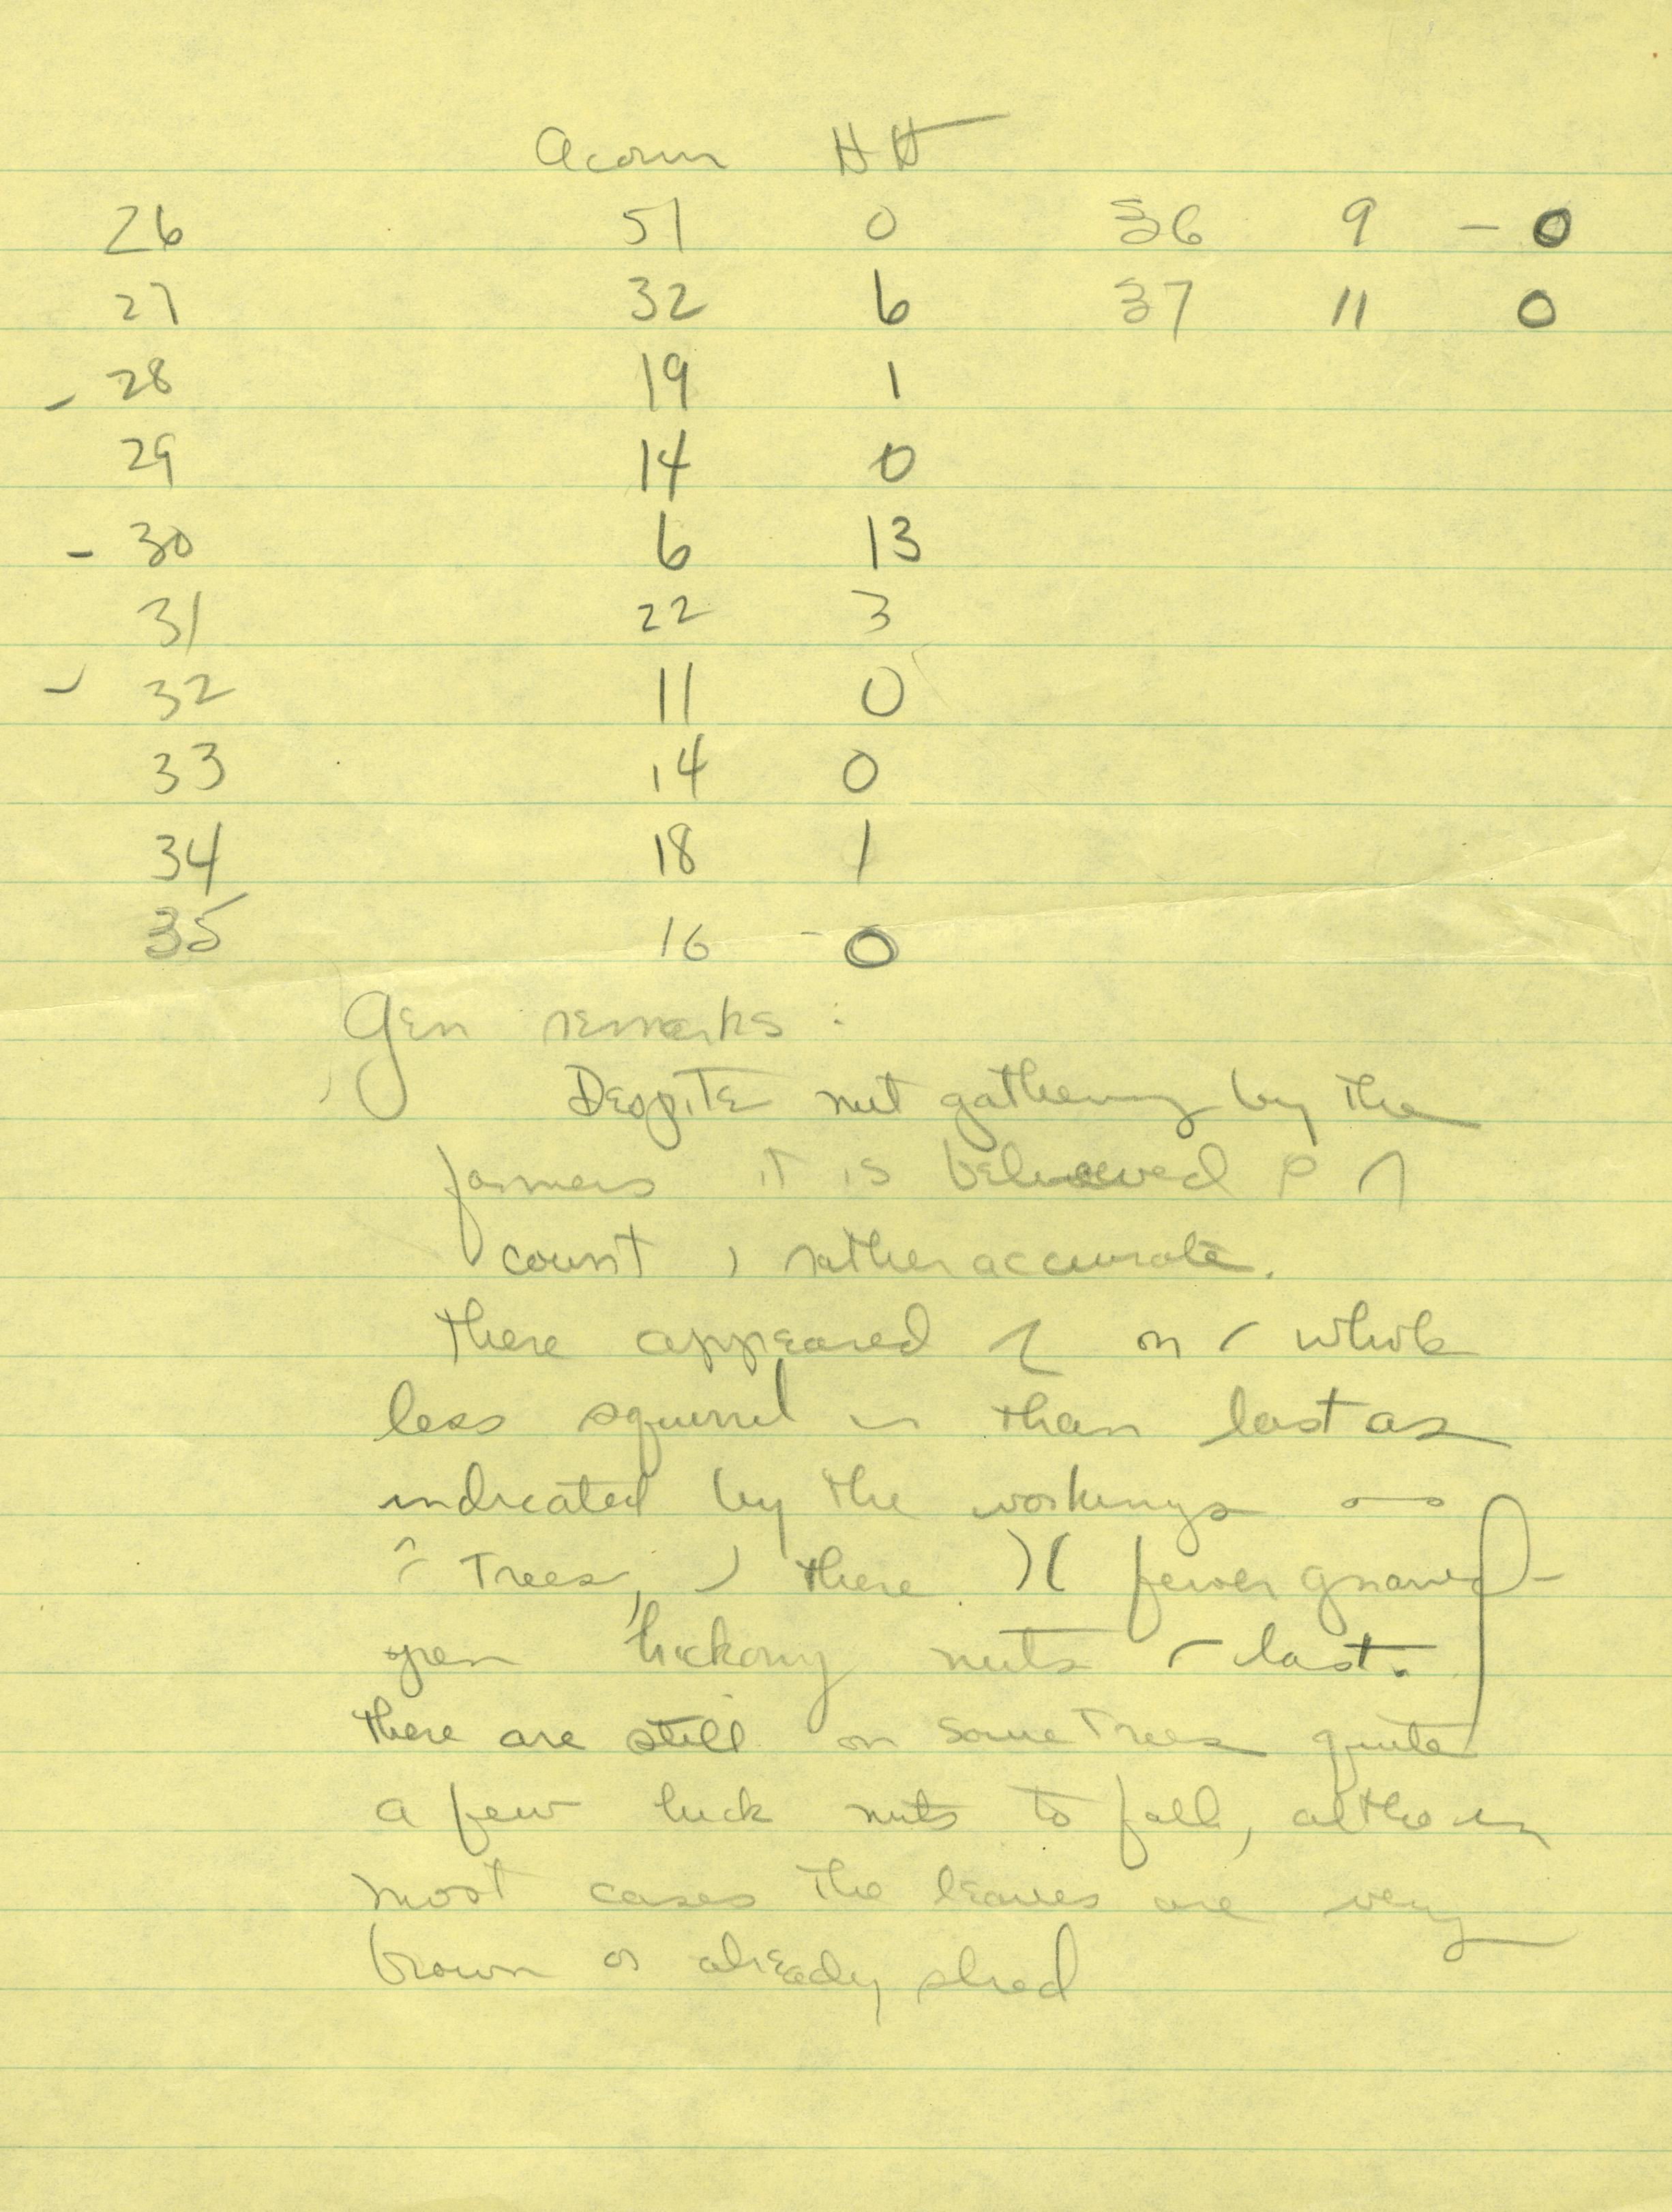 Acorn HN
26 51 0 36 9 - 0
27 32 6 37 11 0
- 28 19 1
29 14 0
- 30 6 13
31 22 3
- 32 11 0
33 14 0
34 18 1
35 16 - 0
Gen remarks :
Despite nut gathering by the
farmers it is believed
count rather accurate.
there appeared on whole
less squirrel than last as
indicated by the workings
Trees, there fewer gnawed
open hickory nuts last.
there are still on some trees quite
a few hick nuts to fall, altho in
most cases the leaves are very
brown or already shed